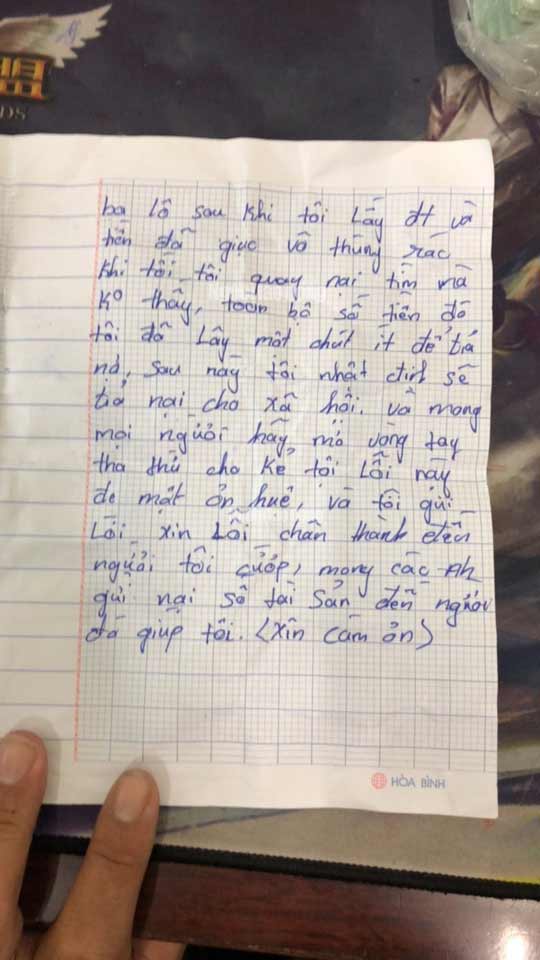 ba lô sau khi tôi Lấy đt và
tiền đã giục vô thùng rác
khi tôi tôi quay nai tìm mà
Kº thấy, toàn bộ số tiền đó
tôi đã Lấy một chút ít để tiả
nợ, sau này tôi nhất định sẽ
tiả nai cho xã hội. và mong
mọi người hãy mở vòng tay
tha thứ cho kẻ tội Lỗi này
de một ởn huê, và tôi gủi
Lời xin Lỗi chân thành đến
người tôi cướp, mong các Ah
gủi nại số tài sản đến người
đã giúp tôi. <Xin cảm ởn>
HÒA BÌNH